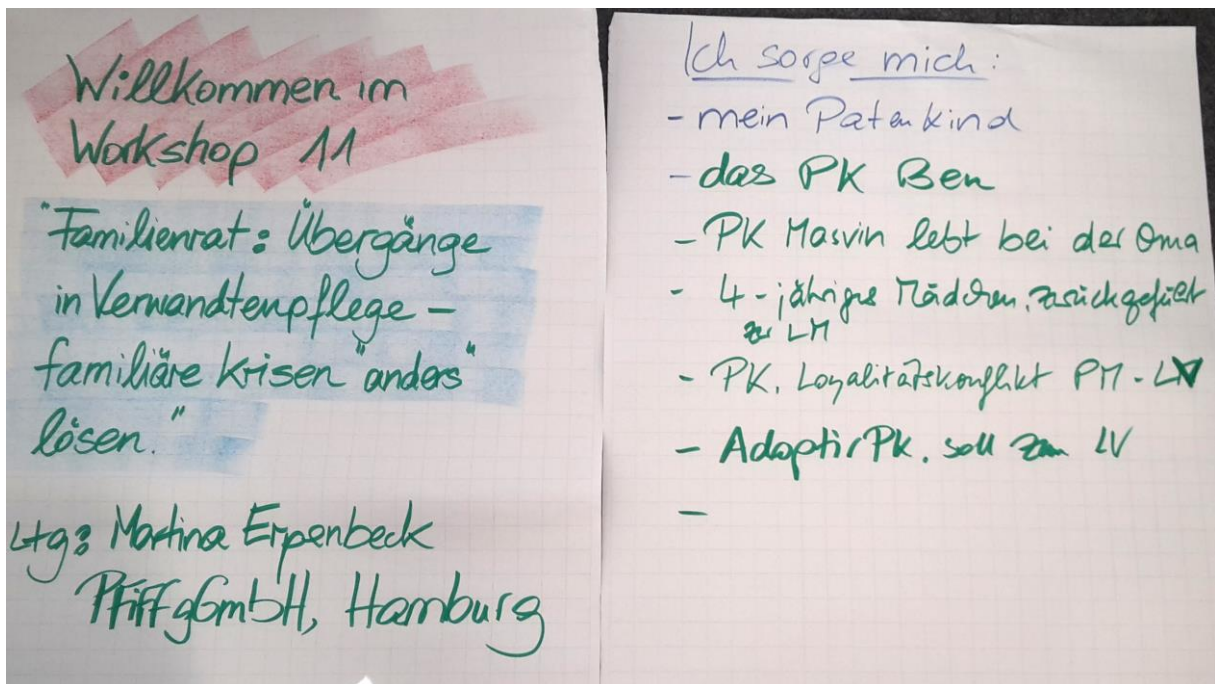 Willkommen im
Workshop 11
"Familienrat: Übergänge
in Verwandtenpflege –
familiäre Krisen "anders"
lösen."
Ltg: Martina Erpenbeck
PFiFF gGmbH, Hamburg
Ich sorge mich:
- mein Patenkind
- das PK Ben
- PK Marvin lebt bei der Oma
- 4-jähriges Mädchen, zurückgeführt
zur LM
- PK. Loyalitätskonflikt PM - LV
- Adoptiv PK. soll zum LV
-